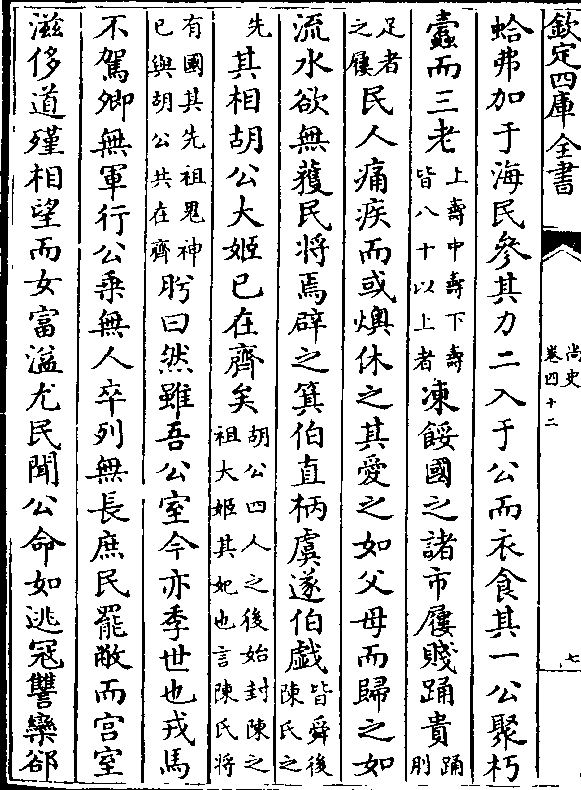 欽定四庫全書
尚史
卷四十二
七
蛤弗加于海民參其力二入于公而衣食其一公聚朽
蠹而三老上壽中壽下壽皆八十以上者凍餒國之諸市屨賤踊貴踊刖
足者之屨民人痛疾而或燠休之其愛之如父母而歸之如
流水欲無獲民將焉辟之箕伯直柄虞遂伯戲皆舜後陳氏之
先其相胡公大姬已在齊矣胡公四人之後始封陳之祖大姬其妃也言陳氏將
有國其先祖鬼神已與胡公共在齊肸曰然雖吾公室今亦季世也戎馬
不駕卿無軍行公乘無人卒列無長庶民罷敝而宫室
滋侈道殣相望而女富溢尤民聞公命如逃冦讐欒郤